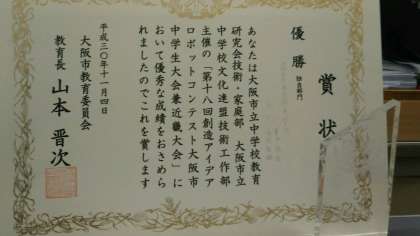 賞状
優勝
あなたは大阪市立中学校教育
研究会技術・家庭部 大阪市立
中学校文化連盟技術工作部
主催の「第十八回創造アイデア
ロボットコンテスト大阪市
中学生大会兼近畿大会」に
おいて優秀な成績をおさめら
れましたのでこれを賞します
平成三〇年十一月四日
大阪市教育委員会
教育長 山本晋次